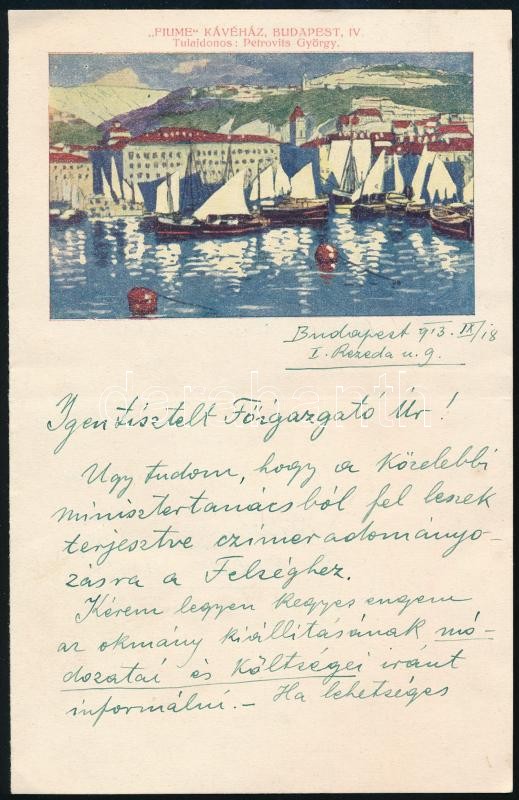 „FIUME" KÁVÉHÁZ, BUDAPEST, IV.
Tulajdonos: Petrovits György.
Budapest 913. IX/18
I. Rezeda u. 9.
Igen tisztelt Főigazgató Úr!
Ugy tudom, hogy a közelebbi
minisztertanácsból fel leszek
terjesztve czímeradományo-
zásra a Felséghez.
Kérem legyen kegyes engem
az okmány kiállitásának mó-
dozatai és költségei iránt
informálni. – Ha lehetséges